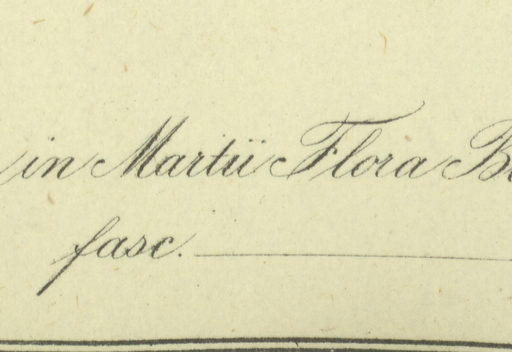 in Martii Flora
fasc.